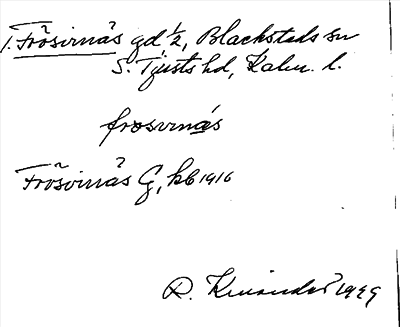 1. Frösvinäs gd ½, Blackstads sn
S. Tjusts hd, Kalm. l.
frosvinás
Frösvinäs G, kb 1916
R. 1949